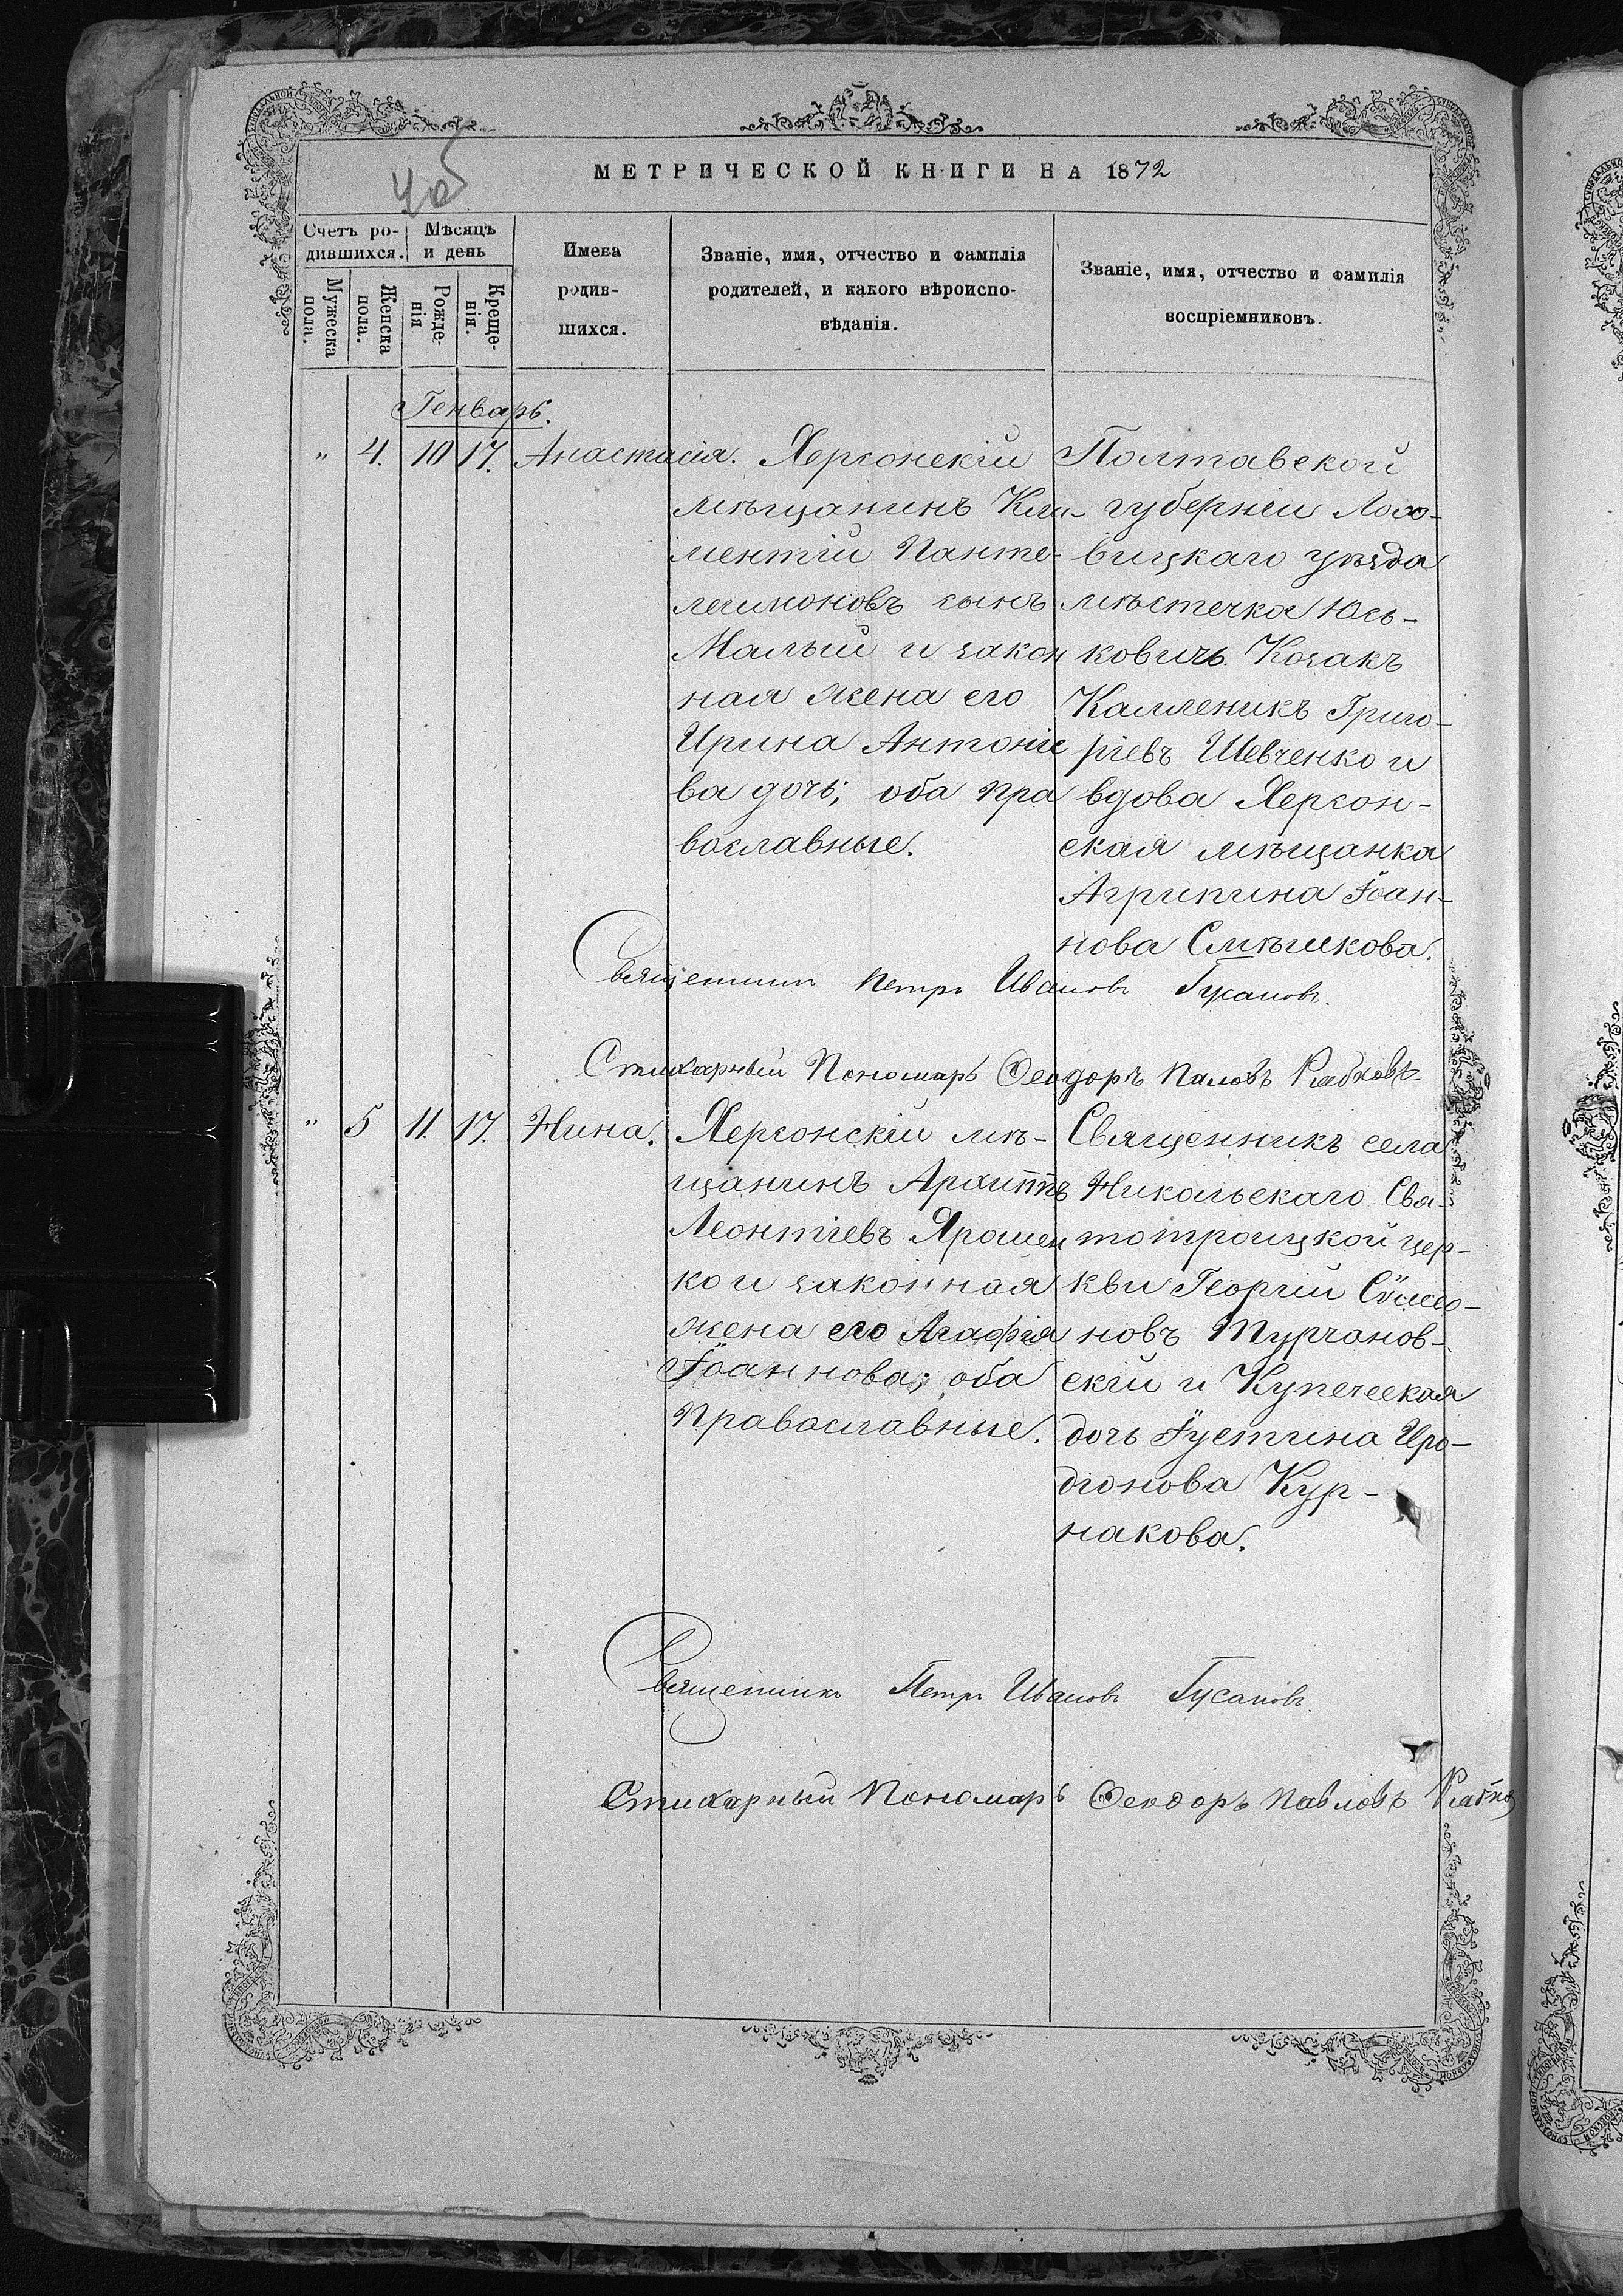 МЕТРИЧЕСКОЙ КНИГИ НА 1872
Счетъ родившихся.
Мѣсяцъ и день
Мужеска пола.
Женска пола.
Рожденія
Крещенія.
Имена родившихся.
Званіе, имя, отчество и фамилія
родителей, и какого вѣроиспо-
вѣданія.
Званіе, имя, отчество и фамилія
воспріемниковъ.
Генварь.
" 4. 10 17. Анастасія.
Херсонскій
мѣщанинъ Кли-
ментій Панте-
леимоновъ сынъ
Малый и закон
ная жена его
Ирина Антоніе
ва дочь; оба пра
вославные.
Полтавской
губерніи Лохо-
вицкаго уѣзда
мѣстечка Юсь-
ковичь Козакъ
Каленикъ Григо-
ріевъ Шевченко и
вдова Херсон-
ская мѣщанка
Агрипина Іоан-
нова Смѣшкова.
Священникъ Петръ Ивановъ Гусановъ.
Стихарный Пономарь Ѳеодоръ Павловъ
" 5 11. 17. Нина.
Херсонскій мѣ-
щанинъ Архиппъ
Леонтіевъ Ярошен
ко и законная
жена его Агафія
Іоаннова; оба
православные.
Священникъ села
Никольскаго Свя-
тотроицкой цер-
кви Георгій Сѵмео-
новъ Турчанов-
скій и Купеческая
дочь Іустина Иро-
діонова Кур-
накова.
Священникъ Петръ Ивановъ Гусановъ.
Стихарный Пономарь Ѳеодоръ Павловъ